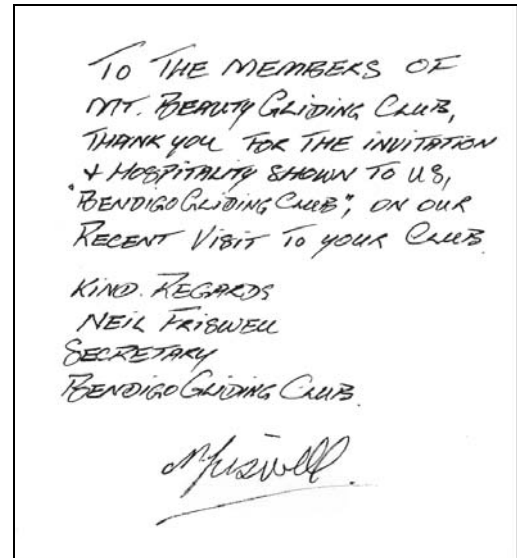 TO THE MEMBERS OF
MT. BEAUTY GLIDING CLUB,
THANK YOU FOR THE INVITATION
+ HOSPITALITY SHOWN TO US,
"BENDIGO GLIDING CLUB", ON OUR
RECENT VISIT TO YOUR CLUB.
KIND. REGARDS
NEIL FRISWELL
SECRETARY
BENDIGO GLIDING CLUB.
NFriswell.